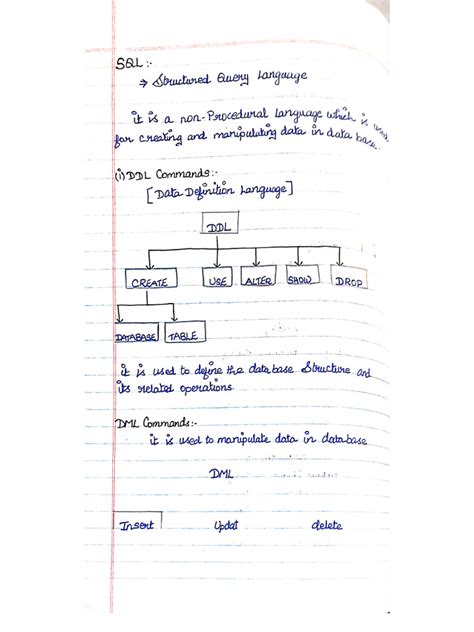 SQL :-
→ Structured Query Language
it is a non-Procedural language which is used
for creating and manipulating data in data base.
(i) DDL Commands:-
[Data Definition Language]
DDL
CREATE USE ALTER SHOW DROP
DATABASE TABLE
it is used to define the data base Structure and
its related operations
DML Commands:-
it is used to manipulate data in database
DML
Insert Updat delete